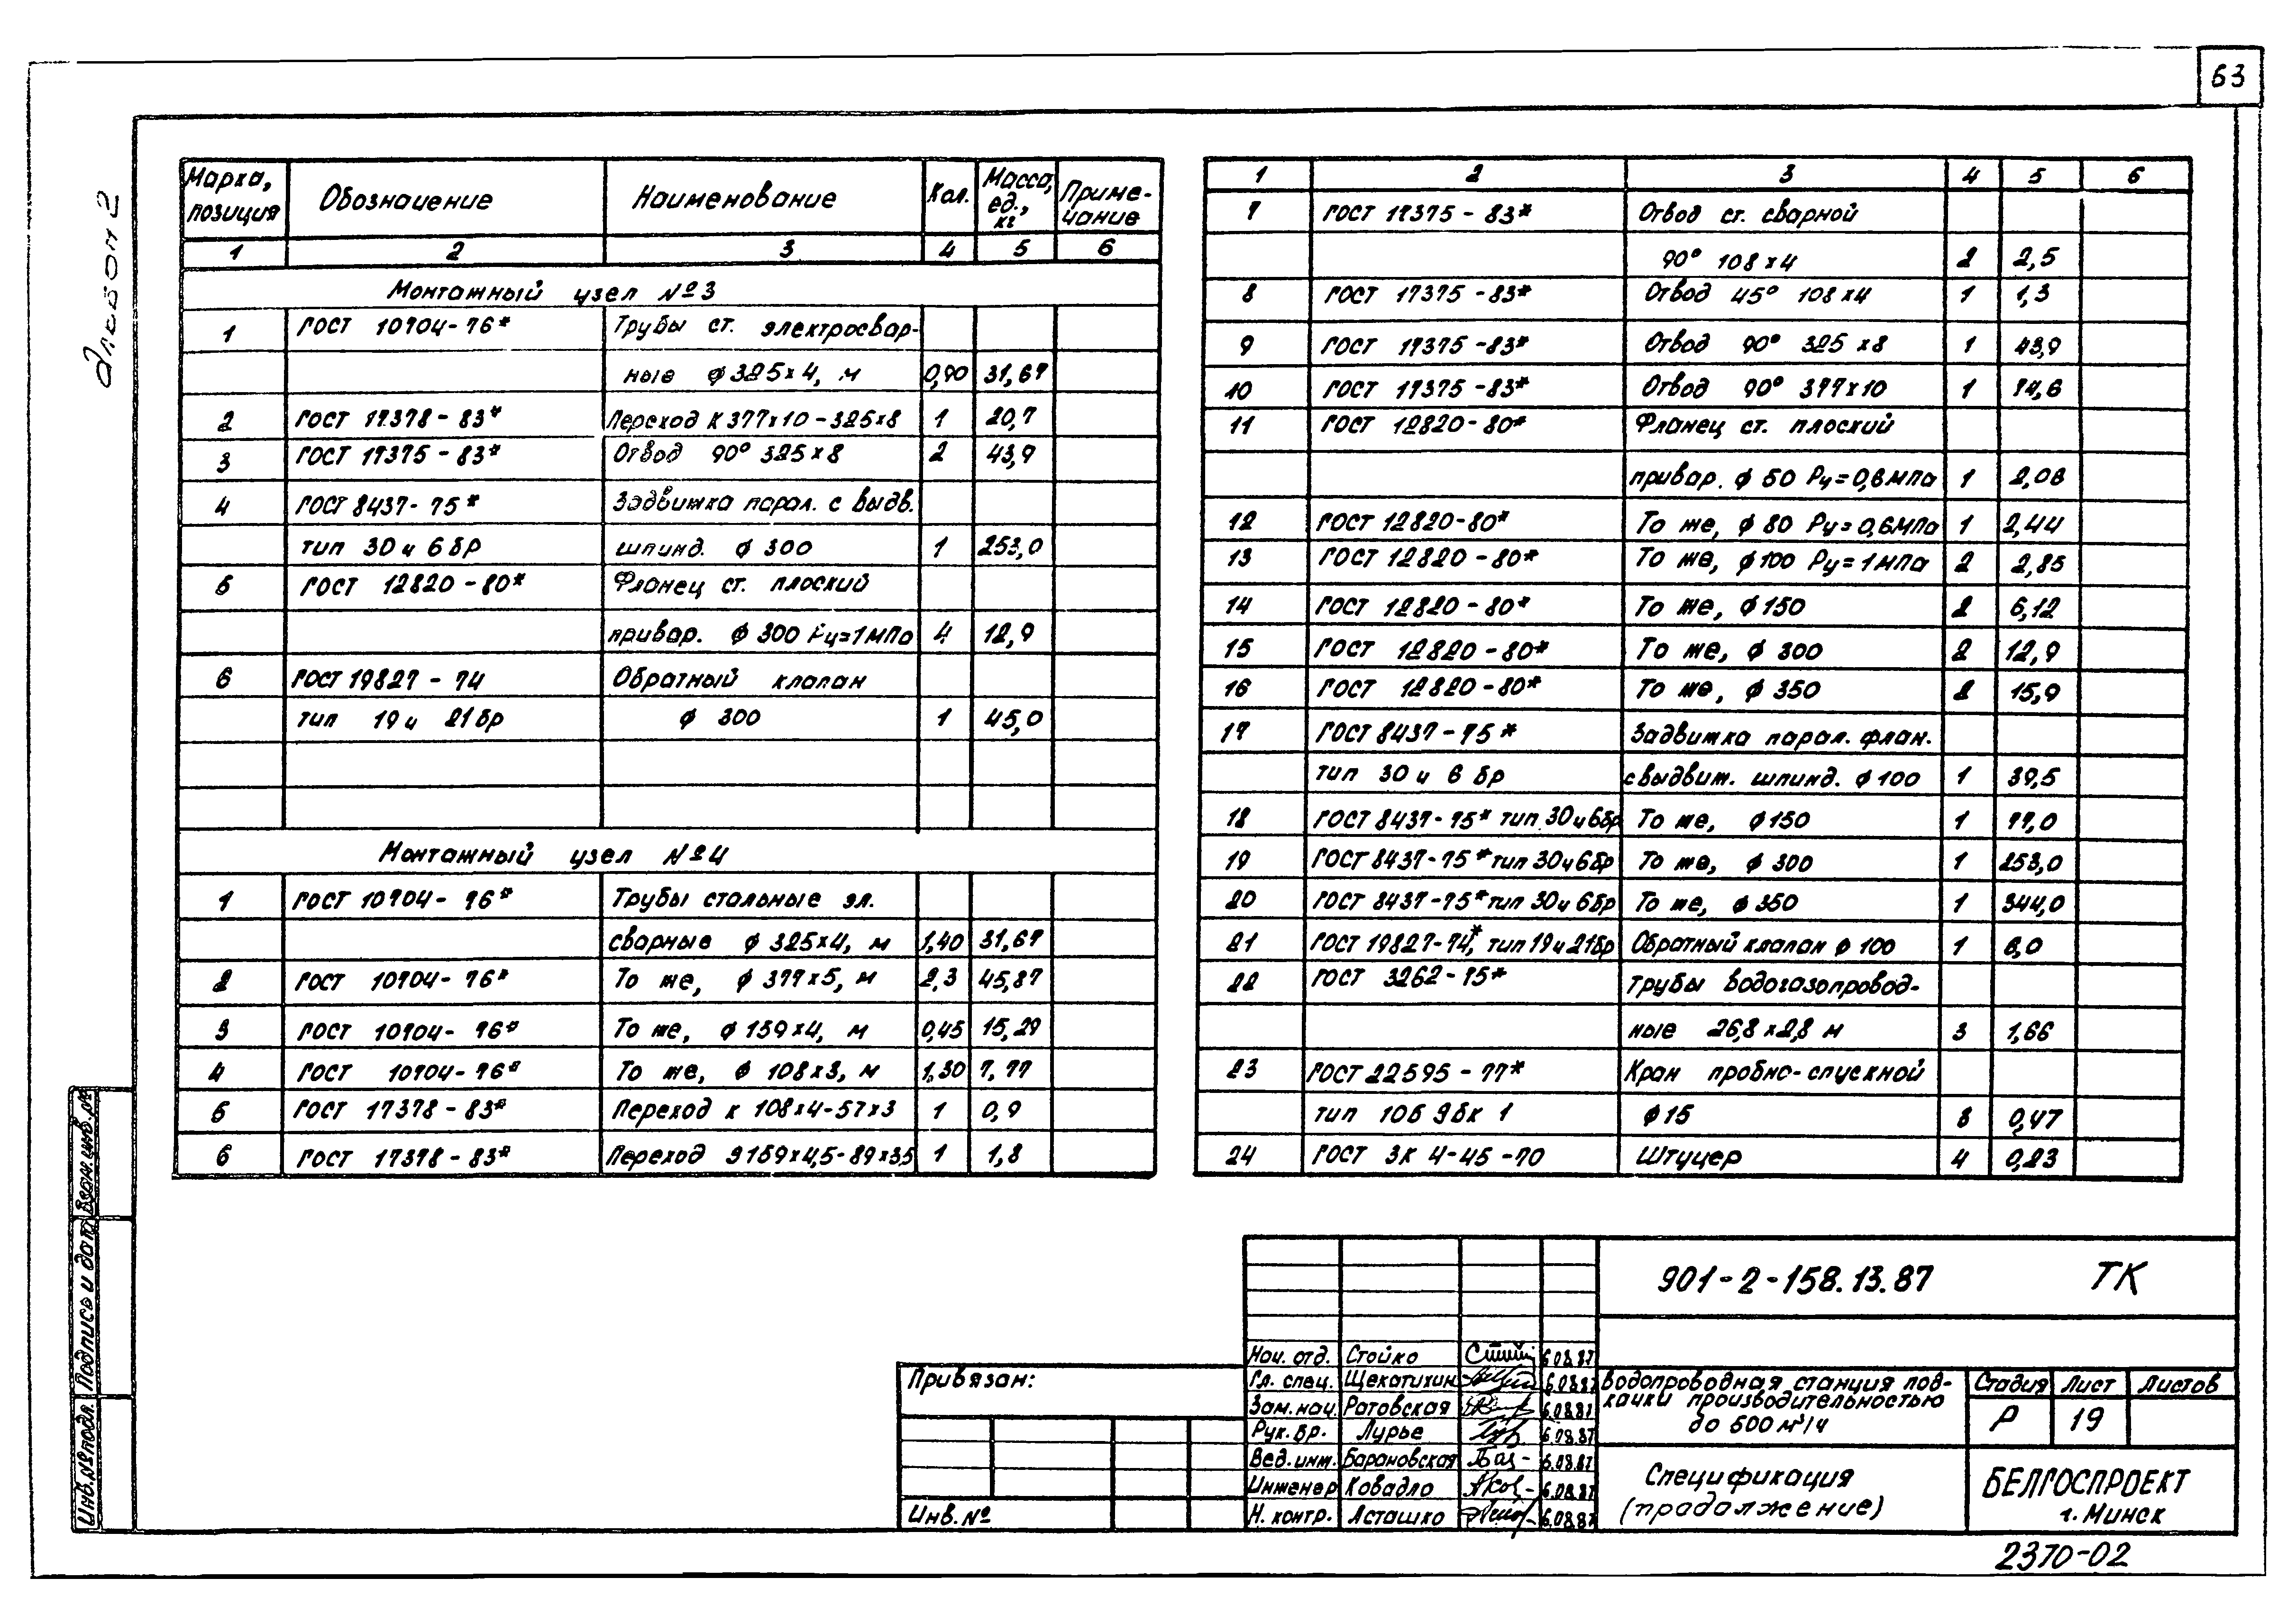 63
Альбом 2
Марка, позиция | Обозначение | Наименование | Кол. | Масса, ед., кг | Приме-чание
1 | 2 | 3 | 4 | 5 | 6
Монтажный узел №3
1 | ГОСТ 10704-76* | Трубы ст. электросвар-
ные ф325х4, м | 0,90 | 31,67
2 | ГОСТ 17378-83* | Переход К 377х10-325х8 | 1 | 20,7
3 | ГОСТ 17375-83* | Отвод 90° 325х8 | 2 | 43,9
4 | ГОСТ 8437-75* | Задвижка парал. с выдв.
тип 30ч 6бр | шпинд. ф 300 | 1 | 253,0
5 | ГОСТ 12820-80* | Фланец ст. плоский
привар. ф 300 Ру=1МПа | 4 | 12,9
6 | ГОСТ 19827-74 | Обратный клапан
тип 19ч 21бр | ф 300 | 1 | 45,0
Монтажный узел №4
1 | ГОСТ 10704-76* | Трубы стальные эл.
сварные ф 325х4, м | 1,40 | 31,67
2 | ГОСТ 10704-76* | То же, ф 377х5, м | 2,3 | 45,87
3 | ГОСТ 10704-76* | То же, ф 159х4, м | 0,45 | 15,29
4 | ГОСТ 10704-76* | То же, ф 108х3, м | 1,30 | 7,77
5 | ГОСТ 17378-83* | Переход К 108х4-57х3 | 1 | 0,9
6 | ГОСТ 17378-83* | Переход Э 159х4,5-89х3,5 | 1 | 1,8
1 | 2 | 3 | 4 | 5 | 6
7 | ГОСТ 17375-83* | Отвод ст. сварной
90° 108х4 | 2 | 2,5
8 | ГОСТ 17375-83* | Отвод 45° 108х4 | 1 | 1,3
9 | ГОСТ 17375-83* | Отвод 90° 325х8 | 1 | 43,9
10 | ГОСТ 17375-83* | Отвод 90° 377х10 | 1 | 74,6
11 | ГОСТ 12820-80* | Фланец ст. плоский
привар. ф 50 Ру=0,6МПа | 1 | 2,08
12 | ГОСТ 12820-80* | То же, ф 80 Ру=0,6МПа | 1 | 2,44
13 | ГОСТ 12820-80* | То же, ф100 Ру=1МПа | 2 | 2,85
14 | ГОСТ 12820-80* | То же, ф150 | 2 | 6,12
15 | ГОСТ 12820-80* | То же, ф 300 | 2 | 12,9
16 | ГОСТ 12820-80* | То же, ф 350 | 2 | 15,9
17 | ГОСТ 8437-75* | Задвижка парал. флан.
тип 30ч 6бр | с выдвиж. шпинд. ф100 | 1 | 39,5
18 | ГОСТ 8437-75* тип 30ч6бр | То же, ф150 | 1 | 77,0
19 | ГОСТ 8437-75* тип 30ч6бр | То же, ф 300 | 1 | 253,0
20 | ГОСТ 8437-75* тип 30ч6бр | То же, ф 350 | 1 | 344,0
21 | ГОСТ 19827-74*, тип 19ч21бр | Обратный клапан ф 100 | 1 | 6,0
22 | ГОСТ 3262-75* | Трубы водогазопровод-
ные 26,8х2,8 м | 3 | 1,66
23 | ГОСТ 22595-77* | Кран пробно-спускной
тип 10б 9бк 1 | ф15 | 8 | 0,47
24 | ГОСТ ЗК 4-45-70 | Штуцер | 4 | 0,23
Взам. инв. №
Подпись и дата
Инв. № подл.
Привязан:
Инв. №
Нач. отд. Стойко 6.08.87
Гл. спец. Щекатихин 6.08.87
Зам. нач. Ратовская 6.08.87
Рук. бр. Лурье 6.08.87
Вед. инж. Барановская 6.08.87
Инженер Ковадло 6.08.87
Н. контр. Асташко 6.08.87
901-2-158.13.87 ТК
Водопроводная станция под-
качки производительностью
до 500 м³/ч
Стадия | Лист | Листов
Р | 19
Спецификация
(продолжение)
БЕЛГОСПРОЕКТ
г. Минск
2370-02